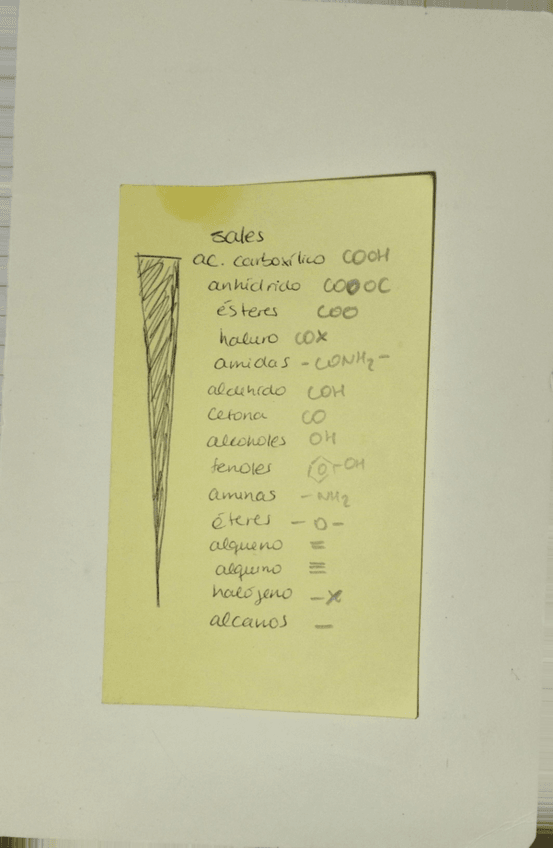 sales
ac. carboxílico COOH
anhídrido COOOC
ésteres COO
haluro COX
amidas -CONH2-
aldehído COH
cetona CO
alcoholes OH
fenoles O-OH
aminas -NH2
éteres -O-
alqueno =
alquino ≡
halógeno -X
alcanos -